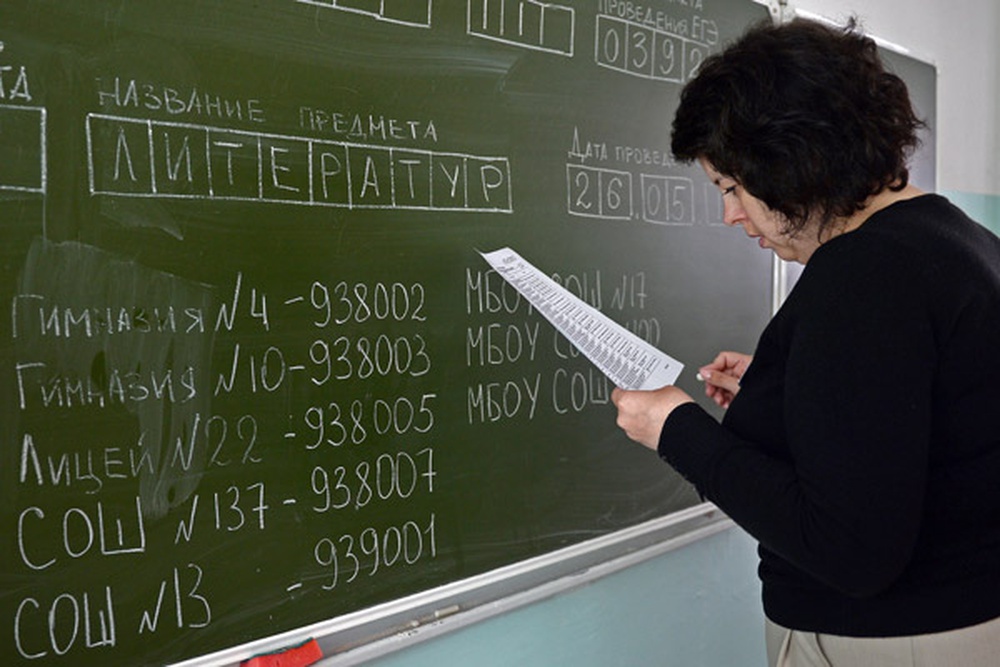 ПРОВЕДЕНИЯ ЕГЭ
0392
ТА
НАЗВАНИЕ ПРЕДМЕТА
ЛИТЕРАТУР
ДАТА
26.05.
Гимназия №4 - 938002
Гимназия №10 - 938003
Лицей №22 - 938005
СОШ №137 - 938007
СОШ №13 - 939001
МБОУ СОШ №17
МБОУ
МБОУ СОШ